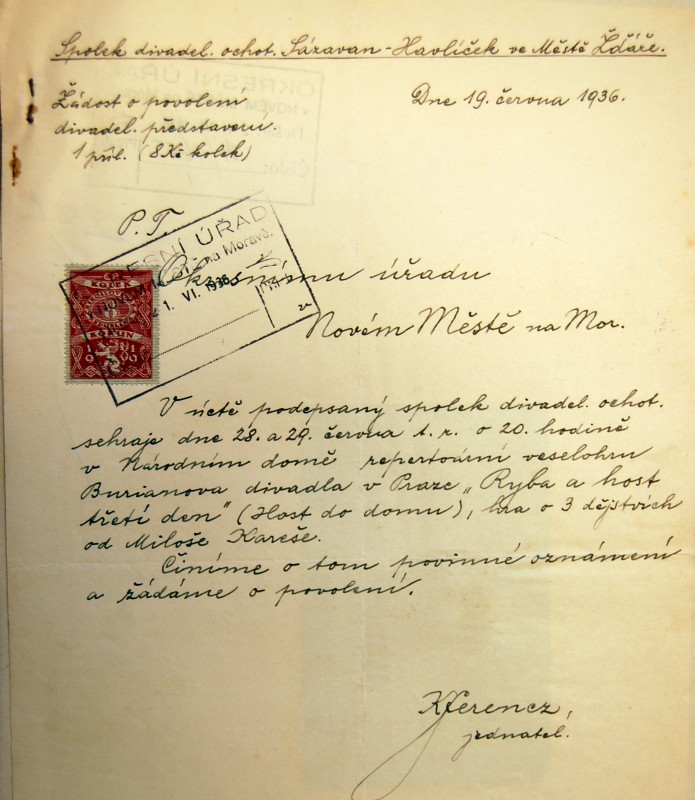 Spolek divadel. ochot. Sázavan-Havlíček ve Městě Žďáře.
Žádost o povolení
divadel. představení.
1 příl. (8 Kč kolek)
Dne 19. června 1936.
P. T.
OKRESNÍ ÚŘAD
na Moravě.
1. VI. 1936
Okresnímu úřadu
v
Novém Městě na Mor.
KOLEK
KORUN
V úctě podepsaný spolek divadel. ochot.
sehraje dne 28. a 29. června t. r. o 20. hodině
v Národním domě repertoární veselohru
Burianova divadla v Praze „Ryba a host
třetí den" (Host do domu), hra o 3 dějstvích
od Miloše Kareše.
Činíme o tom povinné oznámení
a žádáme o povolení.
KFerencz,
jednatel.